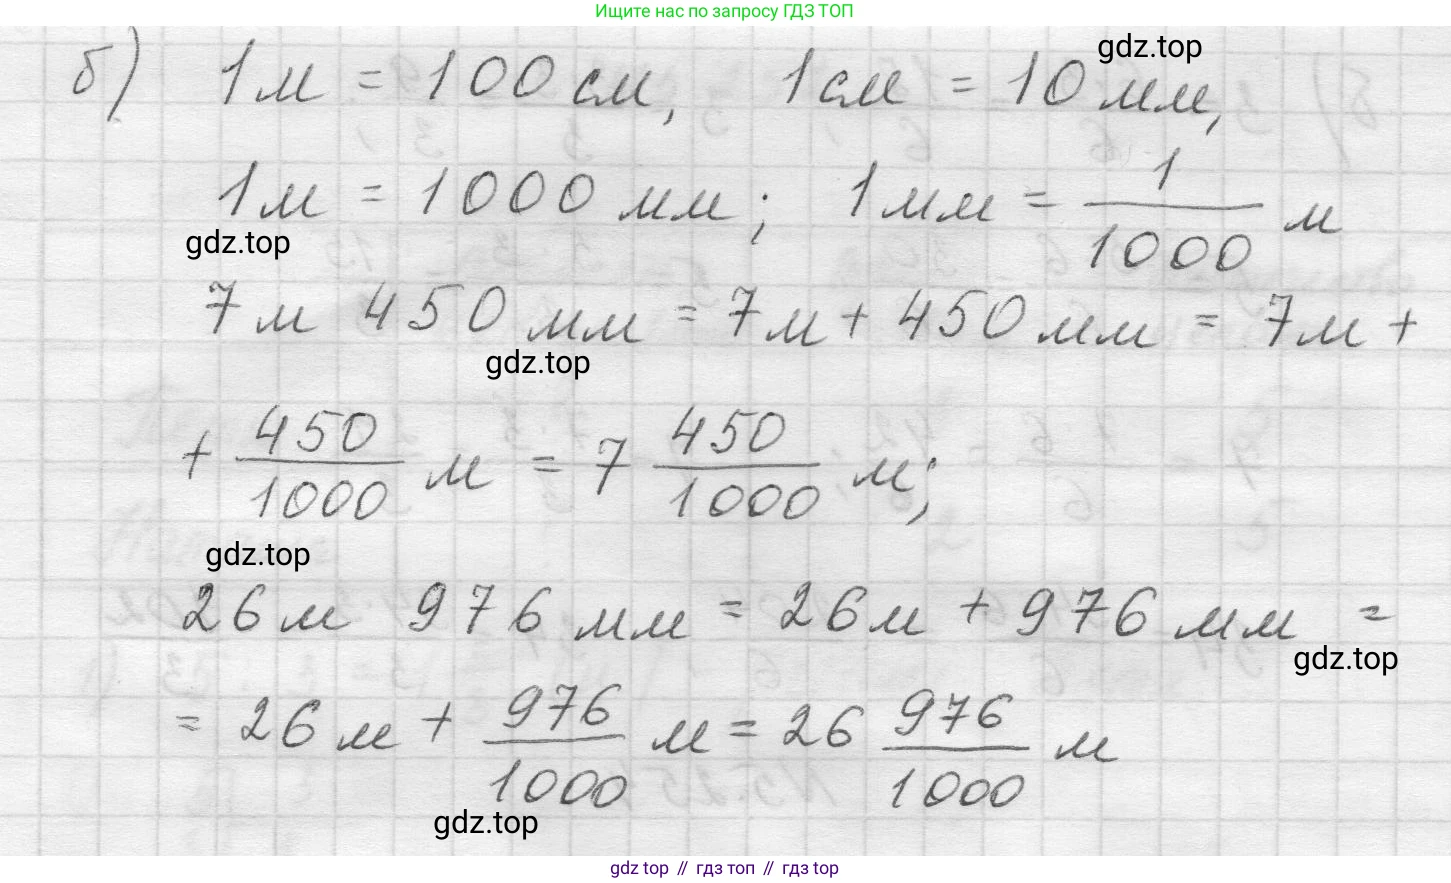 Ищите нас по запросу ГДЗ ТОП
gdz.top
б) 1м = 100 см, 1см = 10 мм,
1м = 1000 мм; 1мм = 1/1000 м
gdz.top
7м 450 мм = 7м + 450 мм = 7м +
gdz.top
+ 450/1000 м = 7 450/1000 м;
gdz.top
26м 976 мм = 26м + 976 мм =
gdz.top
= 26м + 976/1000 м = 26 976/1000 м
gdz.top
gdz top // гдз топ // гдз top